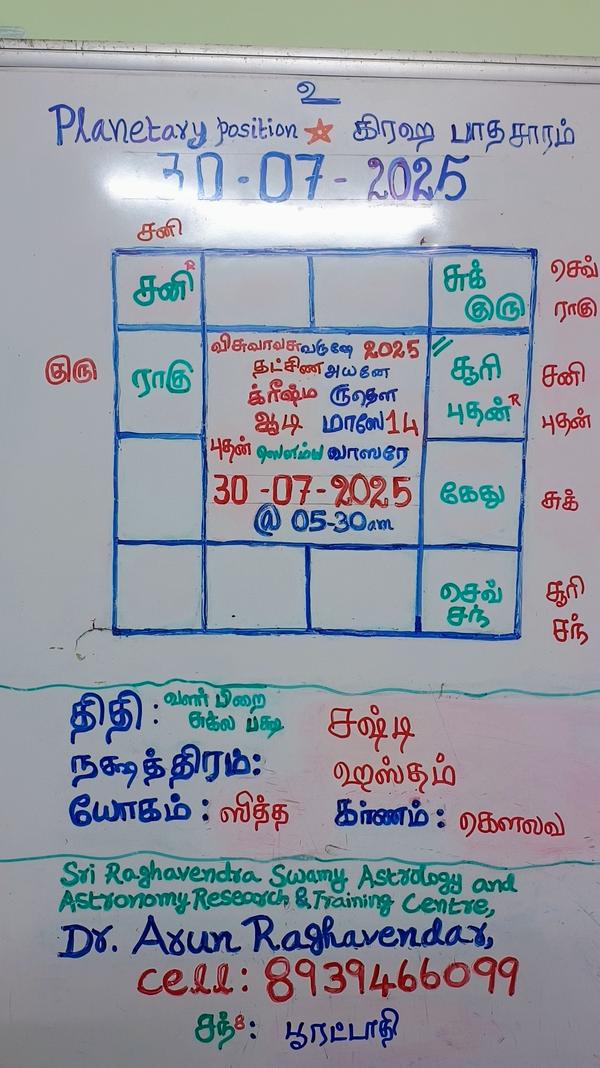 உ
Planetary position ☆ கிரஹ பாதசாரம்
30-07-2025
சனி
சனி R
சுக்
குரு
செவ்
ராகு
குரு
ராகு
விசுவாவசு வருஷே 2025
தட்சிண அயனே
க்ரீஷ்ம ருதௌ
ஆடி மாஸே 14
புதன் ஸௌம்ய வாஸரே
30-07-2025
@ 05-30am
சூரி
புதன் R
சனி
புதன்
கேது
சுக்
செவ்
சந்
சூரி
சந்
திதி: வளர் பிறை
சுக்ல பக்ஷ
சஷ்டி
நக்ஷத்திரம்: ஹஸ்தம்
யோகம்: ஸித்த கர்ணம்: கௌலவ
Sri Raghavendra Swamy Astrology and
Astronomy Research & Training Centre,
Dr. Arun Raghavendar,
cell: 8939466099
சந் 8: பூரட்டாதி